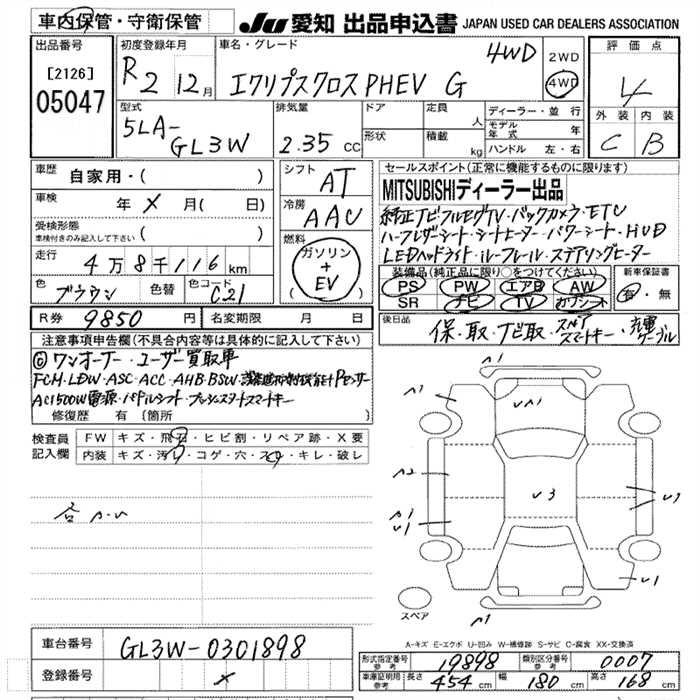 車内保管・守衛保管
JU 愛知 出品申込書 JAPAN USED CAR DEALERS ASSOCIATION
出品番号
[2126]
05047
初度登録年月
R2 12月
車名・グレード
エクリプスクロスPHEV G 4WD
2WD
4WD
評価点
4
外装 内装
C B
型式
5LA-
GL3W
排気量
2.35 CC
ドア
形状
定員 人
積載 kg
ディーラー・並行
モデル年式 年
ハンドル 左・右
車歴
自家用・( )
車検
年 × 月( 日)
受検形態
車検付きのみ記入して下さい ( )
走行
4万8千116km
色
ブラウン
色替
色コード
C21
R券 9850 円
名変期限 月 日
シフト
AT
冷房
AAC
燃料
ガソリン
+
EV
( )
セールスポイント(正常に機能するものに限ります)
MITSUBISHIディーラー出品
純正ナビ・フルセグTV・バックカメラ・ETC
ハーフレザーシート・シートヒーター・パワーシート・HUD
LEDヘッドライト・ルーフレール・ステアリングヒーター
装備品(純正品に限り○をつけてください)
PS PW エアB AW
SR ナビ TV カワシート
新車保証書
有・無
後日品
保・取・ナビ取・スペア
スマートキー・充電
ケーブル
注意事項申告欄(不具合内容等は具体的に記入して下さい)
ワンオーナー・ユーザー買取車
FCM・LDW・ASC・ACC・AHB・BSW・
AC1500W電源・パドルシフト・プッシュスタートスマートキー
修復歴 有 (箇所 )
検査員
記入欄
FW キズ・飛石・ヒビ割・リペア跡・X要
内装 キズ・汚れ・コゲ・穴・スレ・キレ・破レ
A1
UA1
A1
A2
U3
A1
U1
U1
A1
スペア
A-キズ E-エクボ U-凹み W-補修跡 S-サビ C-腐食 XX-交換済
車台番号 GL3W-0301898
登録番号 ×
形式指定番号
参考
19898
類別区分番号
参考
0007
車庫証明用
参考
長さ 454 cm 幅 180 cm 高さ 168 cm